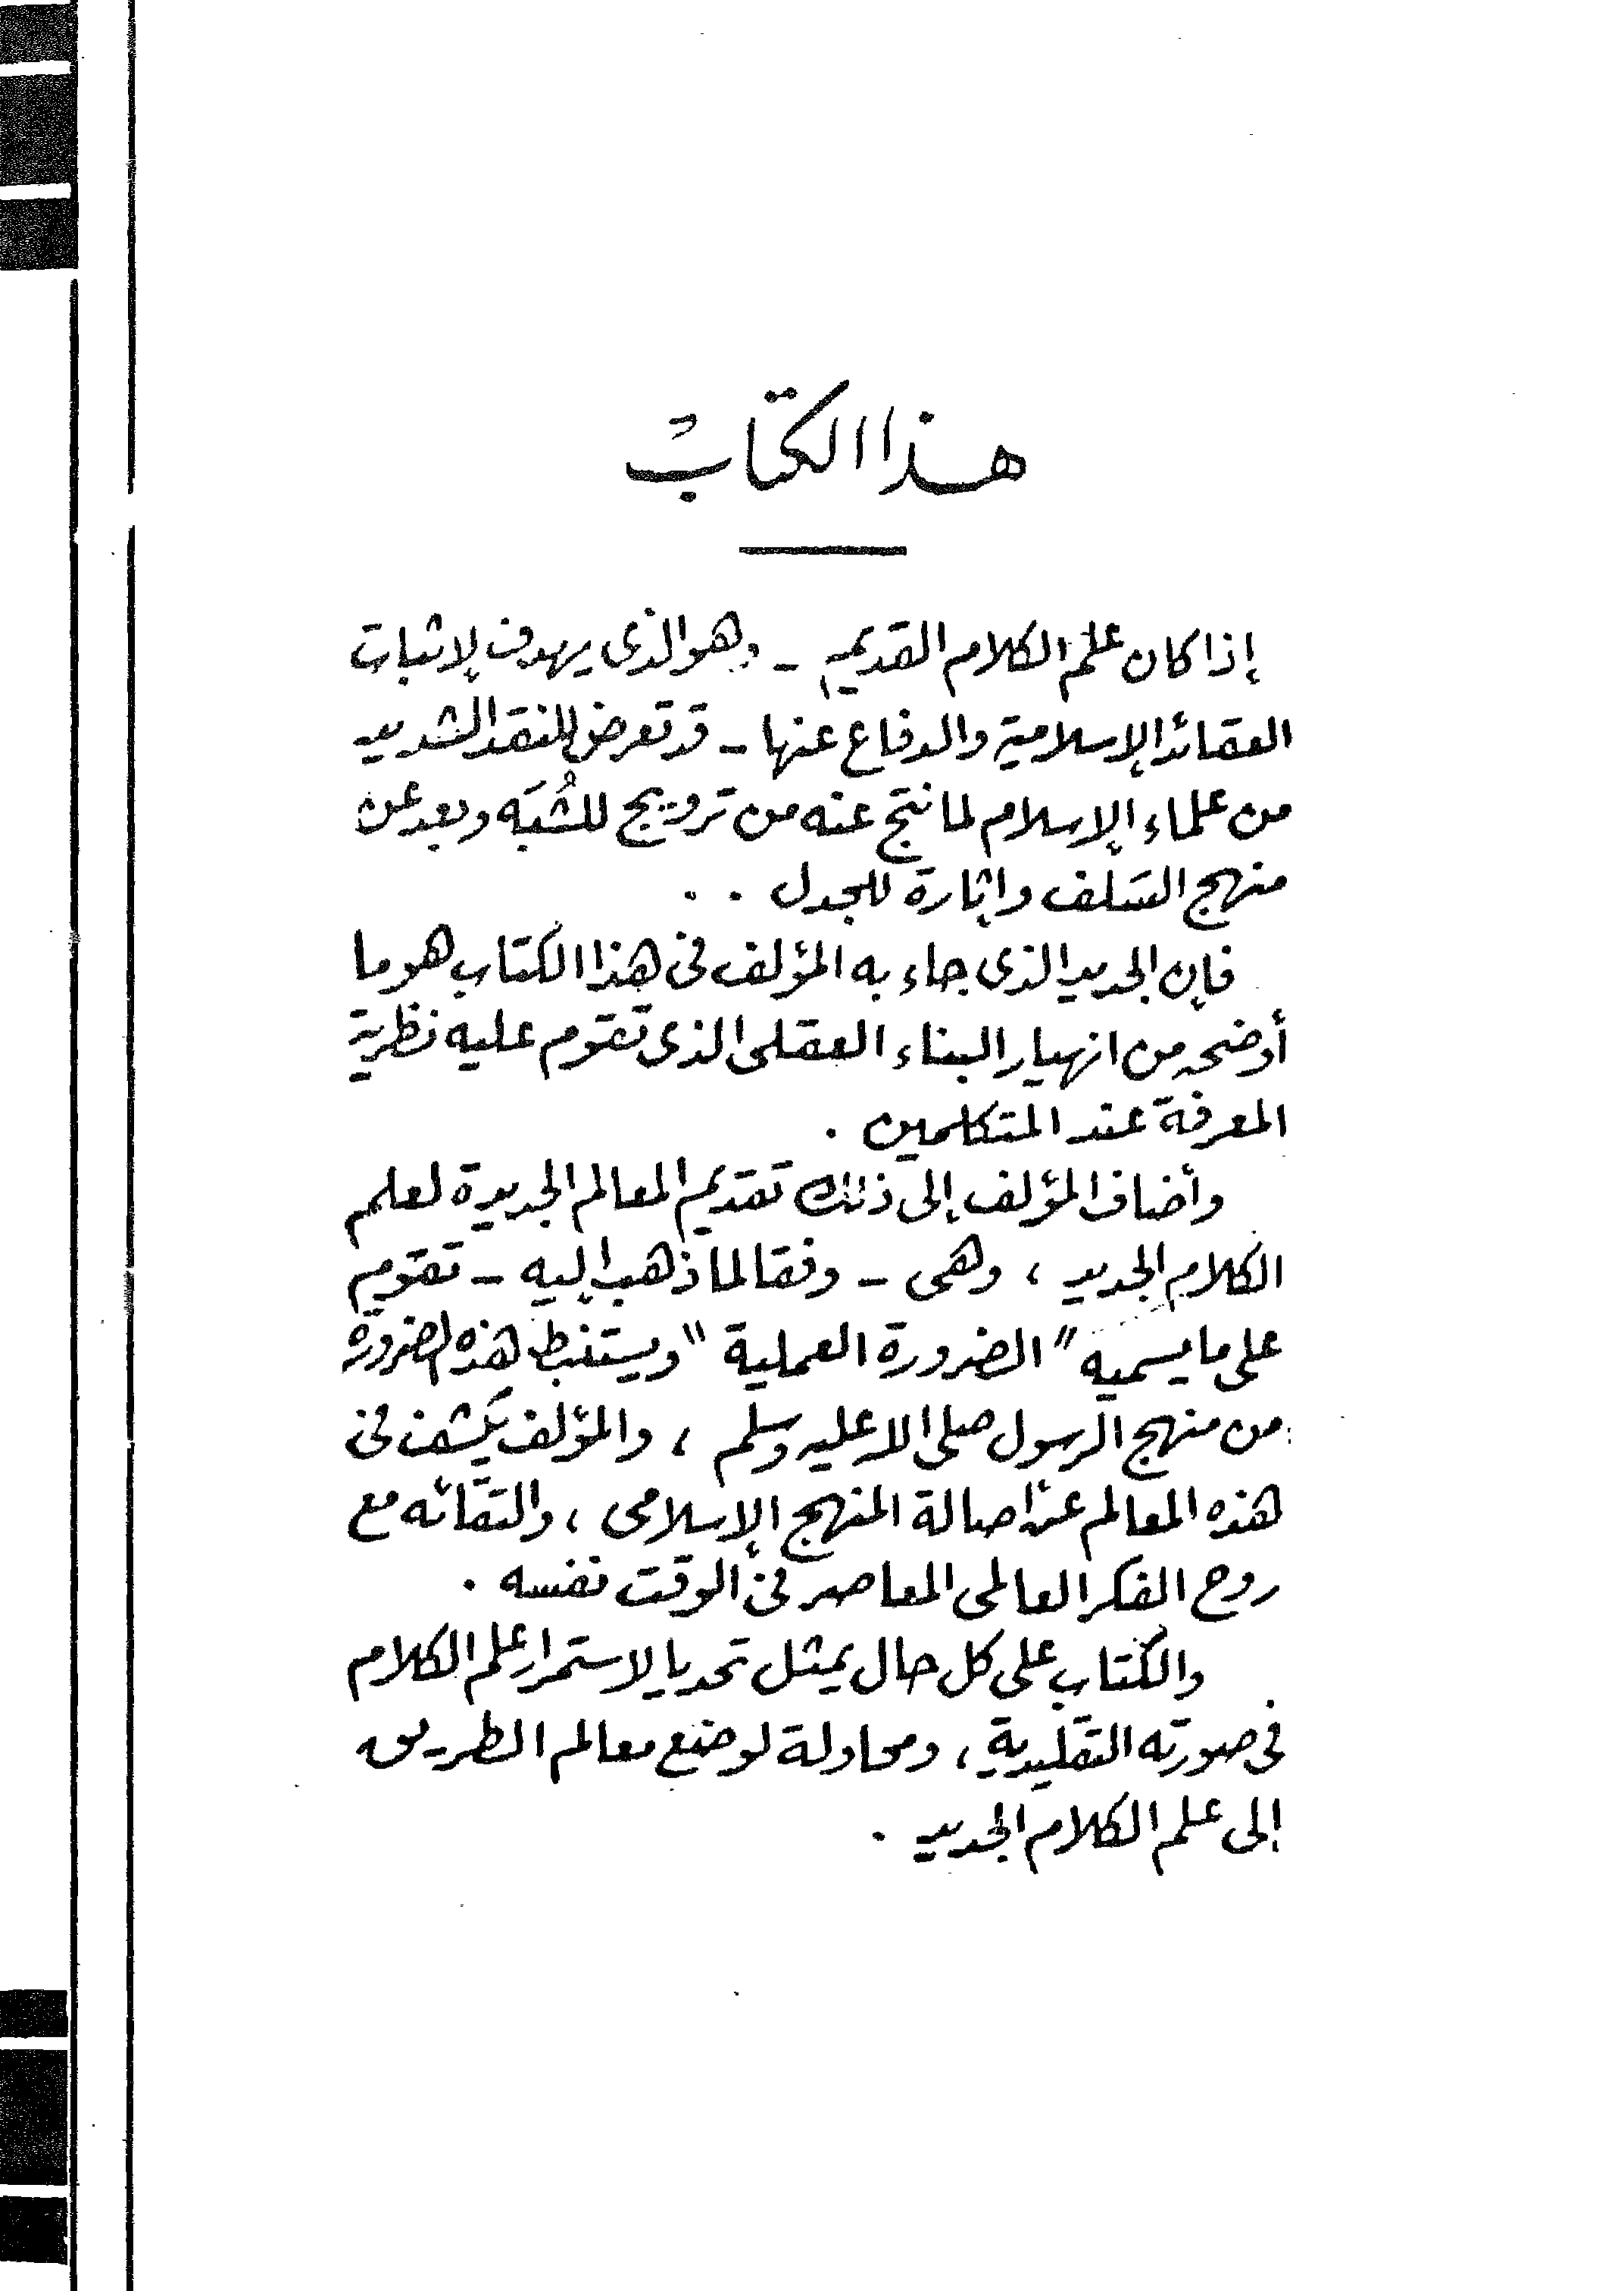 هذا الكتاب
إذا كان علم الكلام القديم - وهو الذى يهدف لإثبات
العقائد الإسلامية والدفاع عنها - قد تعرض للنقد الشديد
من علماء الإسلام لما نتج عنه من ترويج للشُبَه وبعد عن
منهج السَلف وإثارة للجدل . .
فإن الجديد الذى جاء به المؤلف فى هذا الكتاب هو ما
أوضحه من انهيار البناء العقلى الذى تقوم عليه نظرية
المعرفة عند المتكلمين .
وأضاف المؤلف إلى ذلك تقديم المعالم الجديدة لعلم
الكلام الجديد ، وهى - وفقا لما ذهب إليه - تقوم
على ما يسميه " الضرورة العملية " ويستنبط هذه الضرورة
من منهج الرسول صلى الله عليه وسلم ، والمؤلف يكشف فى
هذه المعالم عن أصالة المنهج الإسلامى ، والتقائه مع
روح الفكر العالمى المعاصر فى الوقت نفسه .
والكتاب على كل حال يمثل تحديا لاستمرار علم الكلام
فى صورته التقليدية ، ومحاولة لوضع معالم الطريق
إلى علم الكلام الجديد .